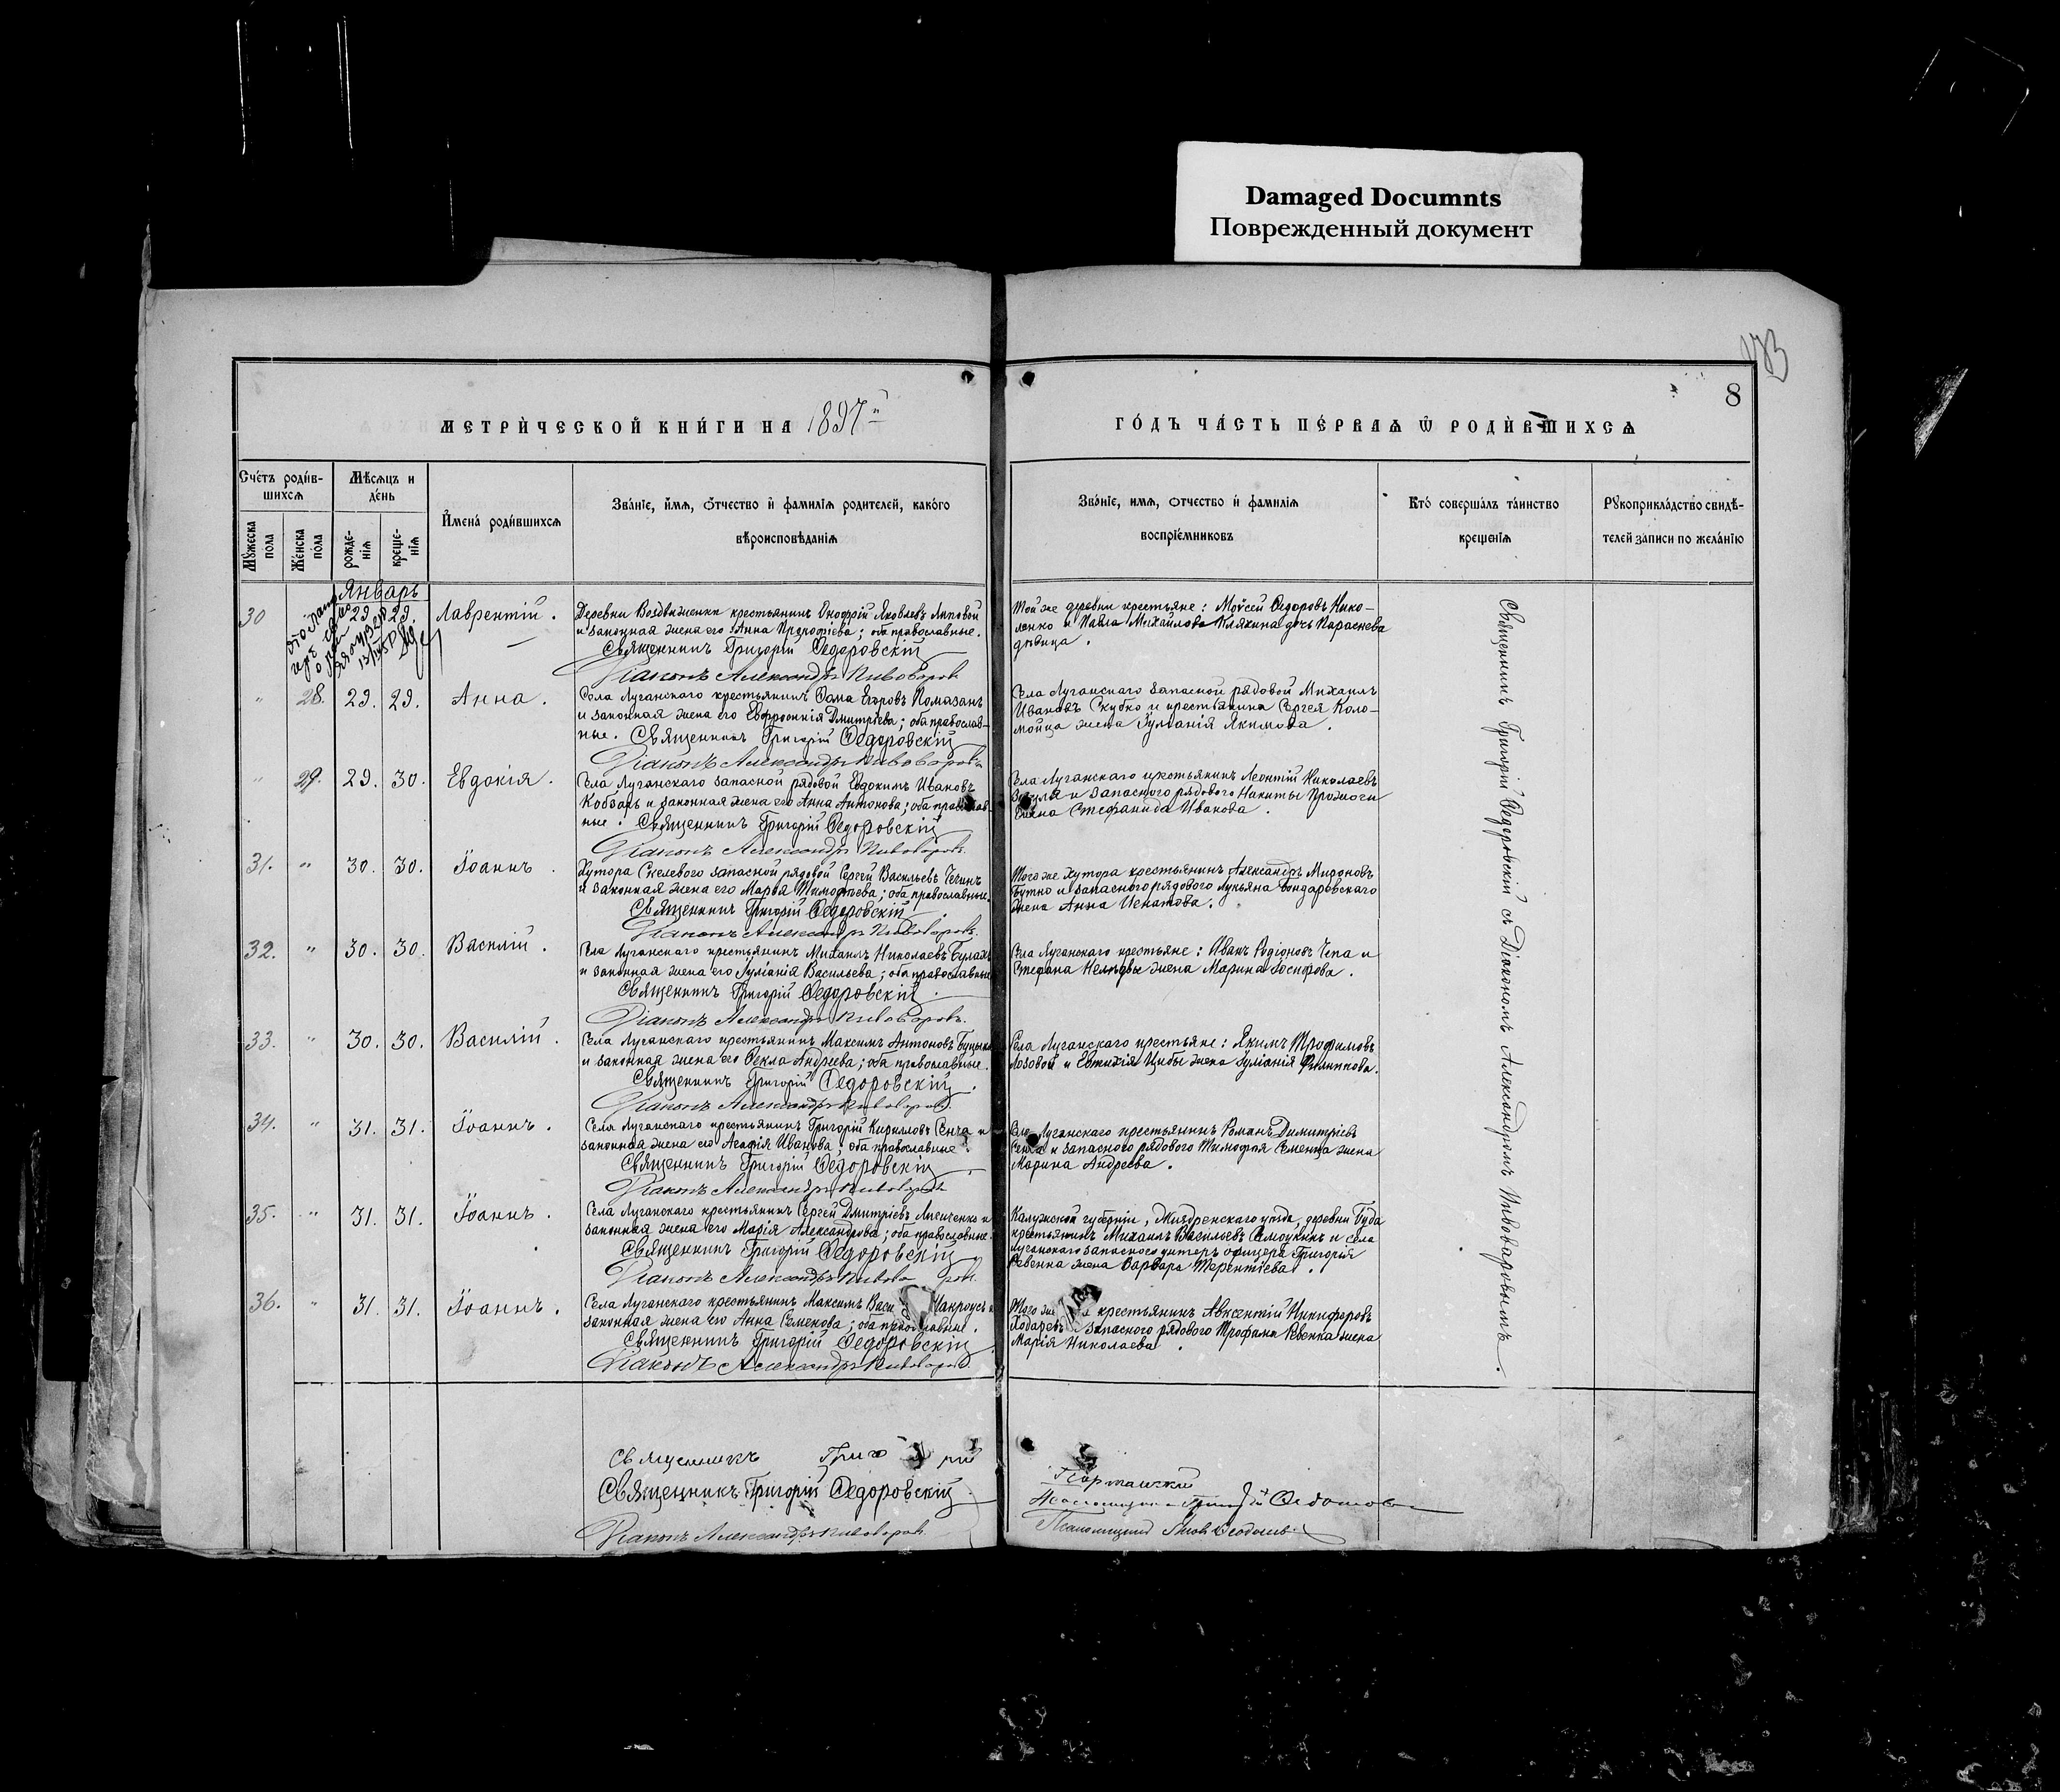 Damaged Documnts
Поврежденный документ
8
МЕТРИ́ЧЕСКОЙ КНИ́ГИ НА 1897й
ГО́ДЪ ЧА́СТЬ ПЕ́РВАѦ Ѿ РОДИ́ВШИХСѦ
Сче́тъ роди́в-
шихсѧ
Мѣ́сѧцъ и
де́нь
Мꙋ́жеска
пола
Же́нска
пола
рожде-
нїѧ
креще-
нїѧ
И҆мена̀ роди́вшихсѧ
Зва́нїе, и҆́мѧ, ѻ҆́тчество и҆ фами́лїѧ роди́телей, како́го
вѣроисповѣ́данїѧ
Зва́нїе, и́мѧ, ѻтчество и҆ фами́лїѧ
воспрїе́мниковъ
Кто̀ соверша́лъ та́инство
креще́нїѧ
Рꙋкоприкла́дство свидѣ́-
телей за́писи по жела́нїю
Январь
30 29. 29. Лаврентій.
Деревни Воздвиженки крестьянинъ Онофрій Яковлевъ Липовой
и законная жена его Анна Прокофіева; оба православные.
Священникъ Григорій Ѳедоровскій
Діаконъ Александръ Пивоваровъ
Той же деревни крестьяне: Мойсей Ѳедоровъ Нико-
ленко и Павла Михайлова дочь Параскева
дѣвица.
" 28. 29. 29. Анна.
Села Луганскаго крестьянинъ Ѳома Егоровъ Помазанъ
и законная жена его Евфросинія Дмитріева; оба православ-
ные. Священникъ Григорій Ѳедоровскій
Діаконъ Александръ Пивоваровъ
Села Луганскаго запасной рядовой Михаилъ
Ивановъ Скубко и крестьянина Сергея Коло-
мойца жена Іуліанія Якимова.
" 29. 29. 30. Евдокія.
Села Луганскаго запасной рядовой Евдокимъ Ивановъ
Кобзарь и законная жена его Анна Антонова; оба православ-
ные. Священникъ Григорій Ѳедоровскій
Діаконъ Александръ Пивоваровъ
Села Луганскаго крестьянинъ Леонтій Николаевъ
и запасного рядового Никиты
жена Стефанида Иванова.
31. " 30. 30. Іоаннъ.
Хутора Скелевого запасной рядовой Сергей Васильевъ
и законная жена его Марѳа Тимофѣева; оба православные.
Священникъ Григорій Ѳедоровскій
Діаконъ Александръ Пивоваровъ
Того же хутора крестьянинъ Александръ Мироновъ
Бутко и запасного рядового Лукьяна Бондаровскаго
жена Анна Игнатова.
32. " 30. 30. Василій.
Села Луганскаго крестьянинъ Михаилъ Николаевъ Булахъ
и законная жена его Іуліанія Васильева; оба православные
Священникъ Григорій Ѳедоровскій
Діаконъ Александръ Пивоваровъ
Села Луганскаго крестьяне: Иванъ Родіоновъ Чепа и
Стефана жена Марина Іосифова.
33. " 30. 30. Василій.
Села Луганскаго крестьянинъ Максимъ Антоновъ
и законная жена его Ѳекла Андреева; оба православные.
Священникъ Григорій Ѳедоровскій.
Діаконъ Александръ Пивоваровъ
Села Луганскаго крестьяне: Якимъ Трофимовъ
Лозовой и Цибы жена Іуліанія Филиппова.
34. " 31. 31. Іоаннъ.
Села Луганскаго крестьянинъ Григорій Кирилловъ Сенча и
законная жена его Агафія Иванова; оба православные.
Священникъ Григорій Ѳедоровскій
Діаконъ Александръ Пивоваровъ
Села Луганскаго крестьянинъ Романъ Димитріевъ
и запасного рядового Тимофея Семенца жена
Марина Андреева.
35. " 31. 31. Іоаннъ.
Села Луганскаго крестьянинъ Сергей Дмитріевъ Лисиченко и
законная жена его Марія Александрова; оба православные.
Священникъ Григорій Ѳедоровскій
Діаконъ Александръ Пивоваровъ
Калужской губерніи, Жиздренскаго уѣзда, деревни Буда
крестьянинъ Михаилъ Васильевъ и села
Луганскаго запасного унтеръ офицера Григорія
Ревенка жена Варвара Терентіева.
36. " 31. 31. Іоаннъ.
Села Луганскаго крестьянинъ Максимъ Васи и
законная жена его Анна Семенова; оба православные.
Священникъ Григорій Ѳедоровскій
Діаконъ Александръ Пивоваровъ
Того же крестьянинъ Авксентій Никифоровъ
запасного рядового Трофима Ревенка жена
Марія Николаева.
Священникъ Григорій Ѳедоровскій съ Діакономъ Александромъ Пивоваровымъ.
Священникъ Григорій
Священникъ Григорій Ѳедоровскій
Діаконъ Александръ Пивоваровъ